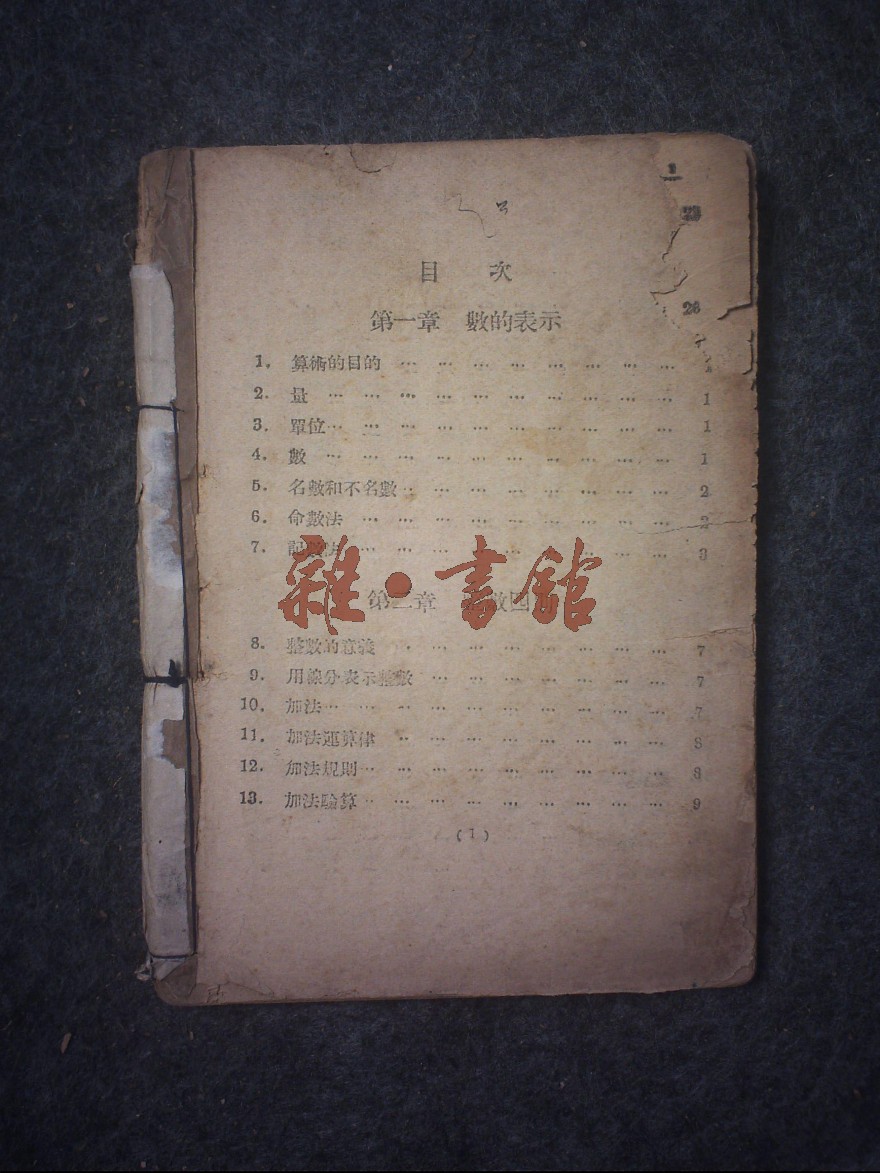 1
23
26
目 次
第一章 數的表示
1. 算術的目的 … … … … … … … … 1
2. 量 … … … … … … … … … … 1
3. 單位 … … … … … … … … … … 1
4. 數 … … … … … … … … … … 1
5. 名數和不名數 … … … … … … … … 2
6. 命數法 … … … … … … … … … 2
7. 記數法 … … … … … … … … … 3
雜·書舘
第二章 數四
8. 整數的意義 … … … … … … … … 7
9. 用線分表示整數 … … … … … … … 7
10. 加法 … … … … … … … … … … 7
11. 加法運算律 … … … … … … … … 8
12. 加法規則 … … … … … … … … … 8
13. 加法驗算 … … … … … … … … … 9
(1)